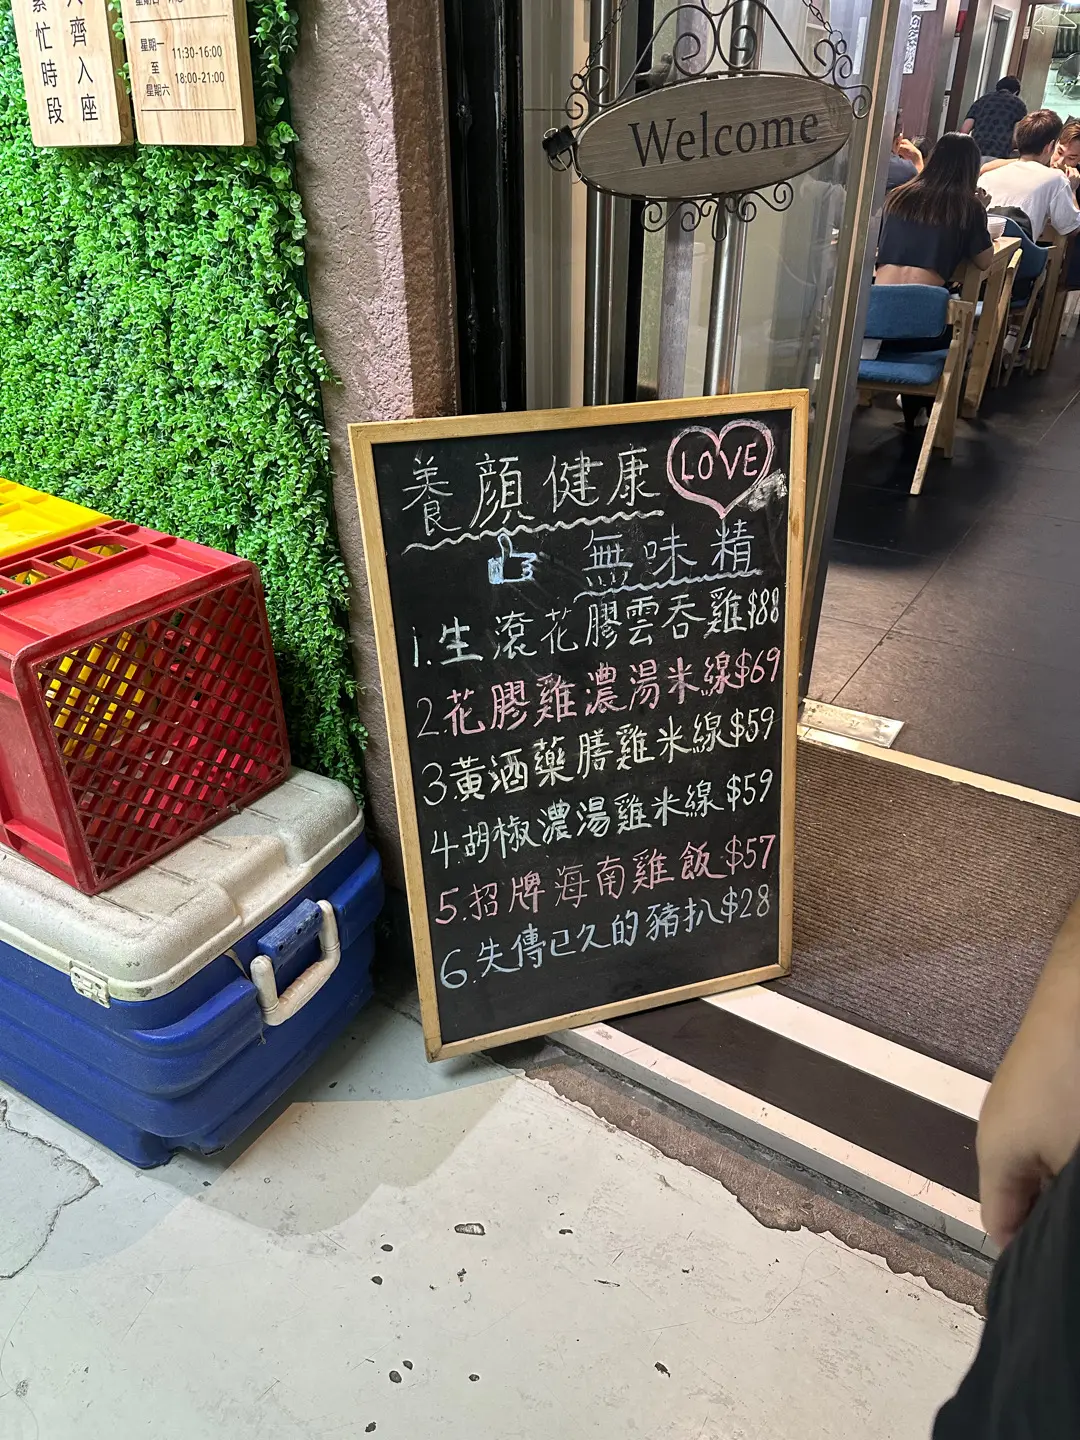 人齊入座
繁忙時段
星期一
至
星期六
11:30-16:00
18:00-21:00
Welcome
養顏健康
LOVE
無味精
1.生滾花膠雲吞雞$88
2.花膠雞濃湯米線$69
3.黃酒藥膳雞米線$59
4.胡椒濃湯雞米線$59
5.招牌海南雞飯$57
6.失傳已久的豬扒$28